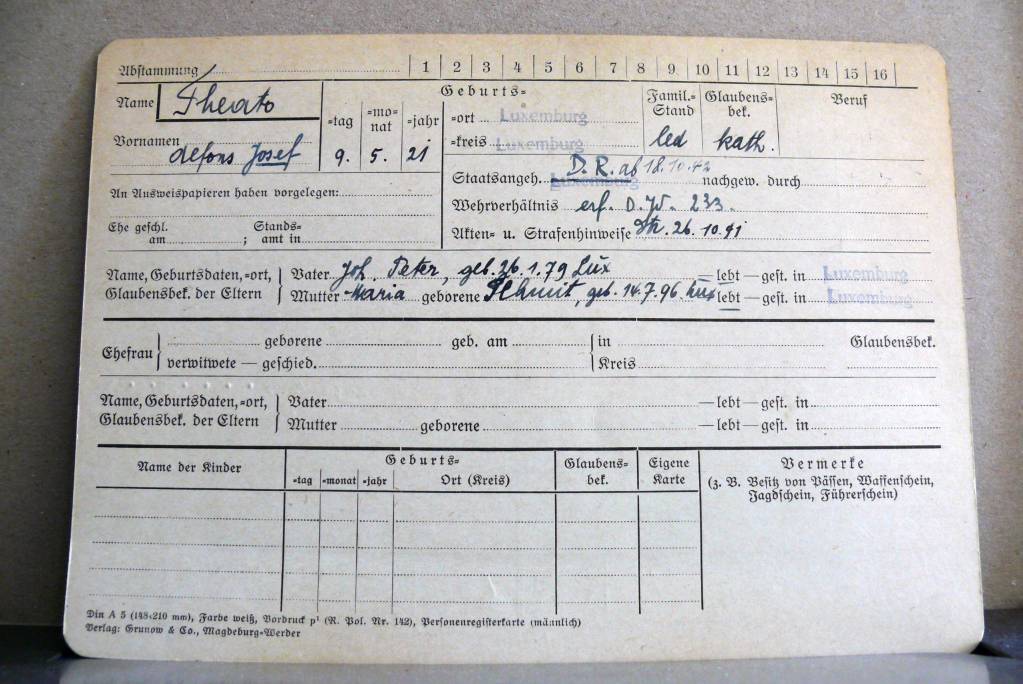 Abstammung 1 2 3 4 5 6 7 8 9 10 11 12 13 14 15 16
Name Theato
Geburts=
Famil.= Stand Glaubens= bek. Beruf
=tag =mo= nat =jahr
=ort Luxemburg
=kreis Luxemburg
Vornamen Alfons Josef 9. 5. 21 led kath.
Staatsangeh. Luxemburg D. R. ab 18.10.42 nachgew. durch
An Ausweispapieren haben vorgelegen:
Wehrverhältnis erf. D.W. 233.
Ehe geschl. am ; Stands= amt in
Akten= u. Strafenhinweise 26.10.41
Name, Geburtsdaten, =ort, Glaubensbek. der Eltern
Vater Joh. Peter, geb. 26.1.79 Lux — lebt — gest. in Luxemburg
Mutter Maria geborene Schmit, geb. 14.7.96 Lux lebt — gest. in Luxemburg
Ehefrau geborene geb. am in Glaubensbek.
verwitwete — geschied. Kreis
Name, Geburtsdaten, =ort, Glaubensbek. der Eltern
Vater — lebt — gest. in
Mutter geborene — lebt — gest. in
Name der Kinder Geburts= Glaubens= bek. Eigene Karte Vermerke
=tag =monat =jahr Ort (Kreis)
(z. B. Besitz von Pässen, Waffenschein,
Jagdschein, Führerschein)
Din A 5 (148×210 mm), Farbe weiß, Vordruck p¹ (R. Pol. Nr. 142), Personenregisterkarte (männlich)
Verlag: Grunow & Co., Magdeburg=Werder